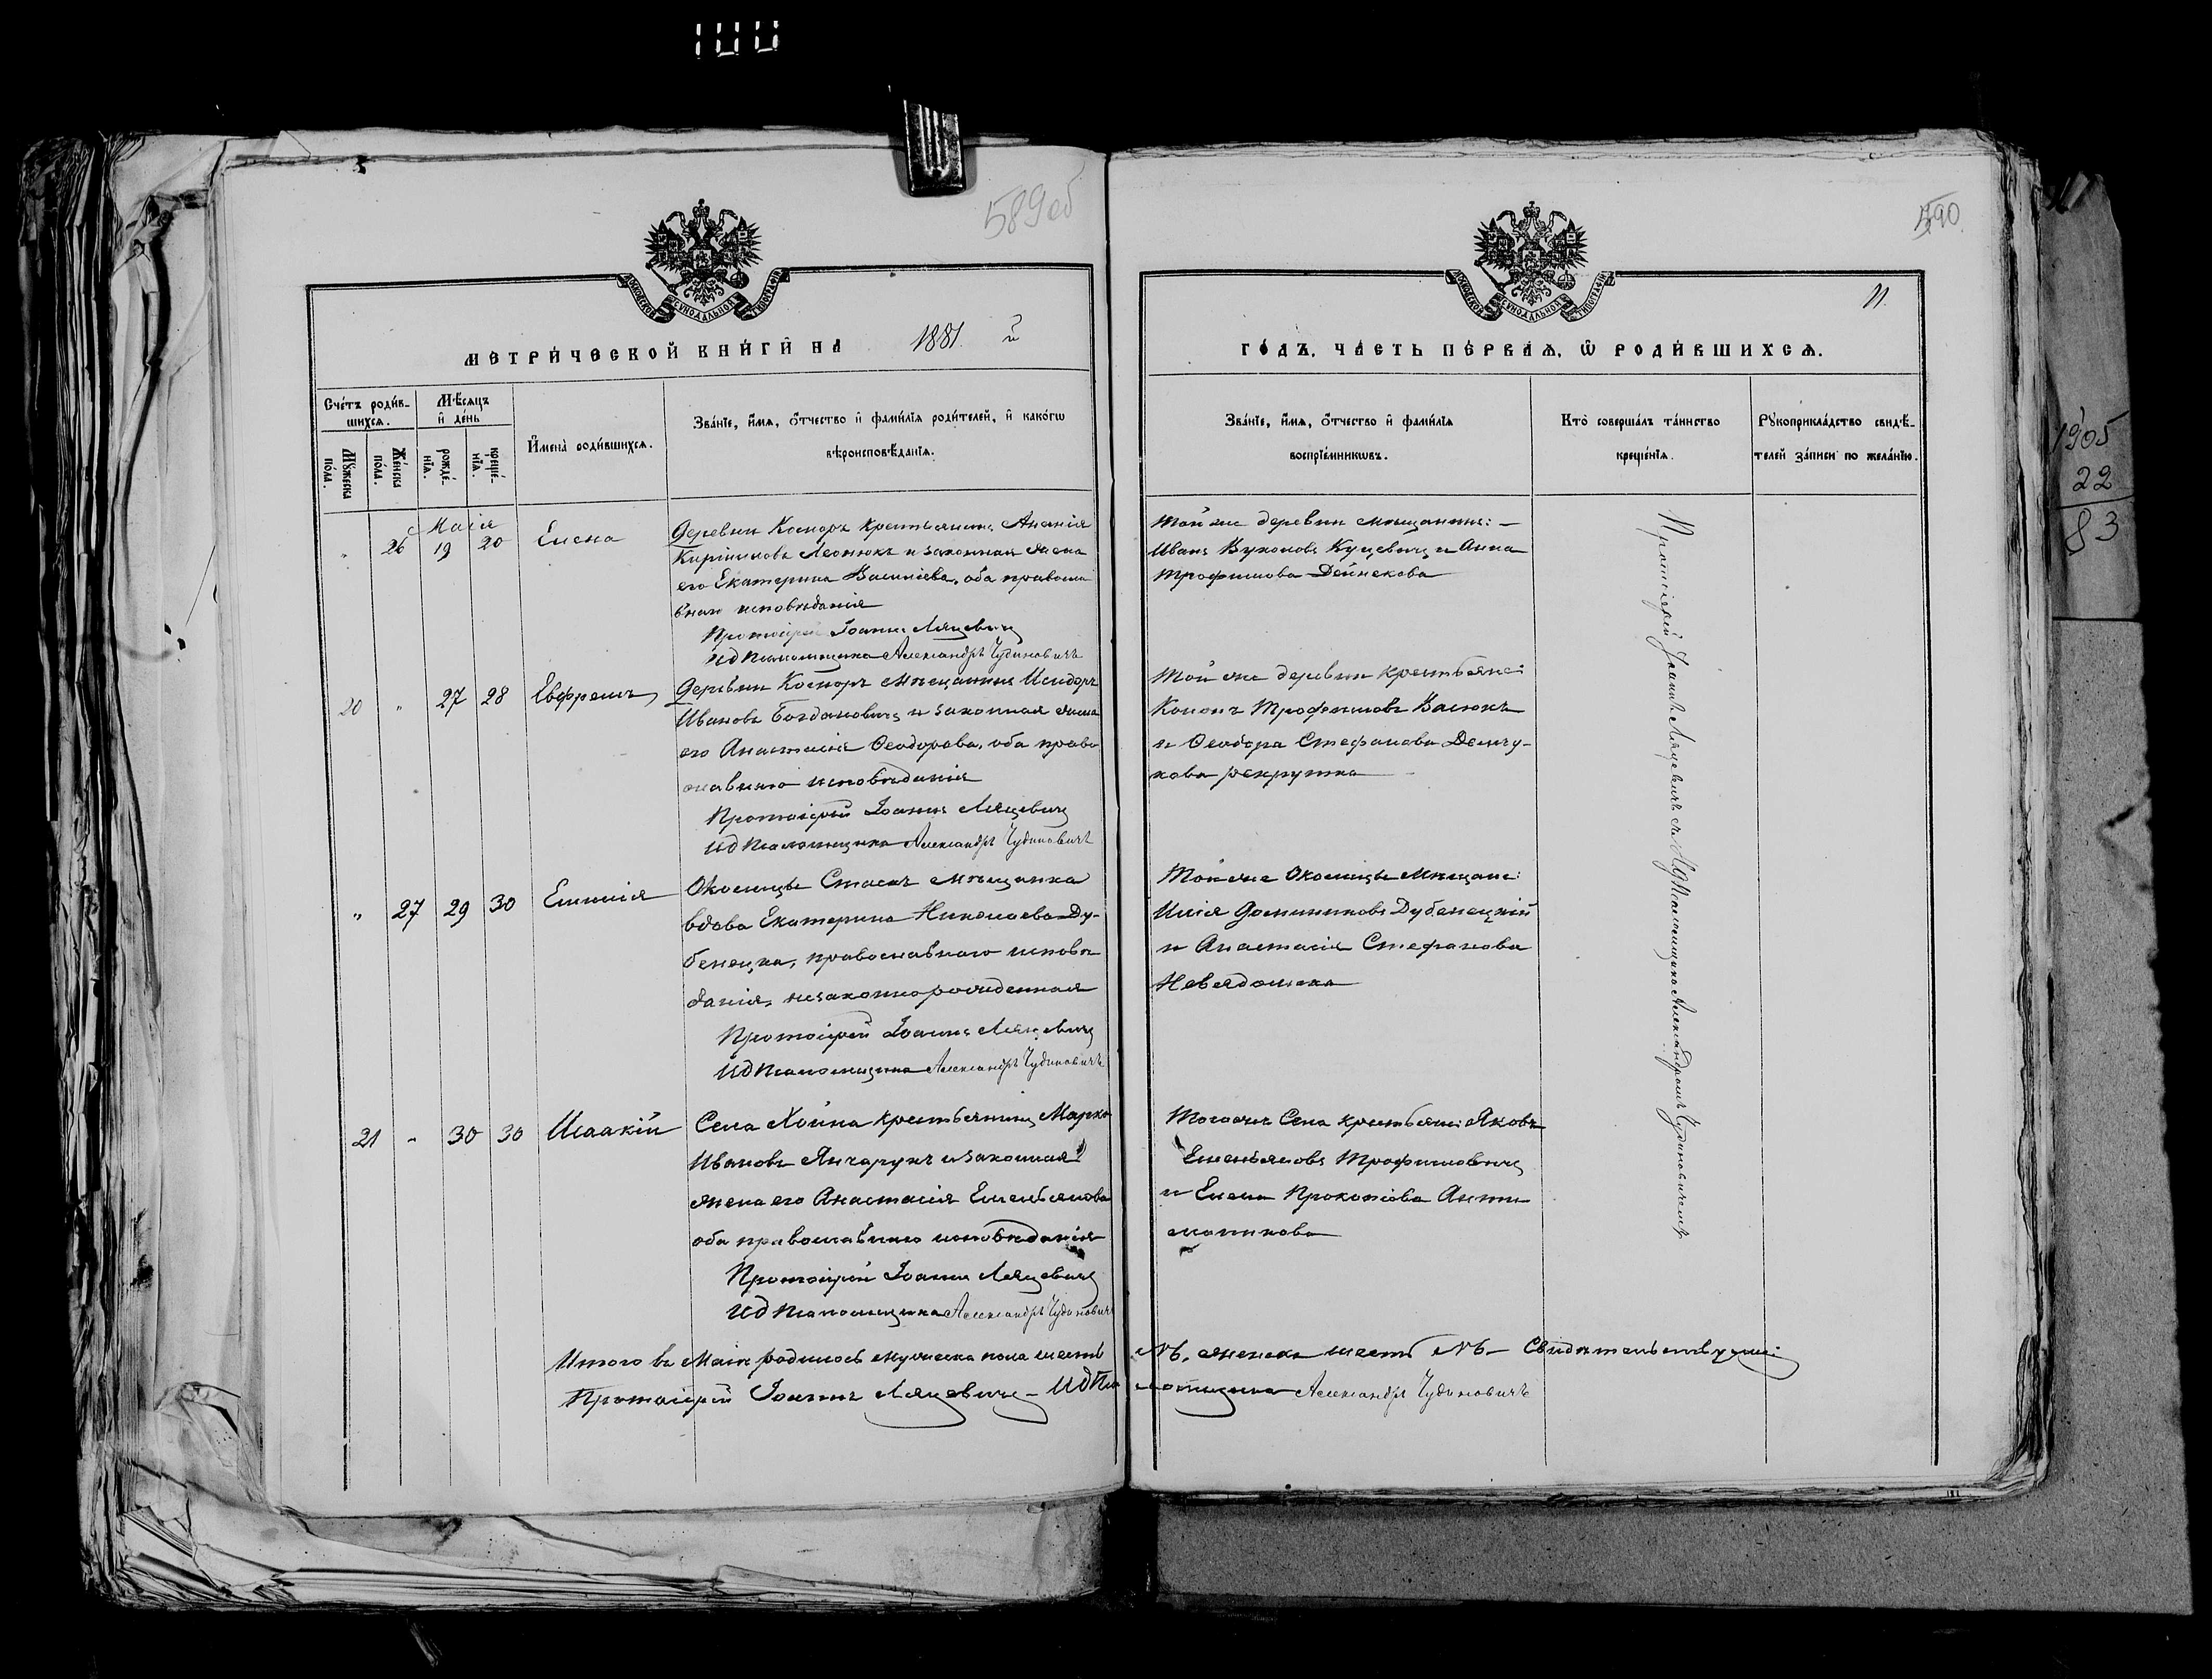 100
589об
590
11
МОСКОВСКОЙ СУНОДАЛЬНОЙ ТИПОГРАФІИ
МОСКОВСКОЙ СУНОДАЛЬНОЙ ТИПОГРАФІИ
МЕТРИ́ЧЕСКОЙ КНИ́ГИ НА 1881 й
ГО́ДЪ, ЧА́СТЬ ПЕ́РВАѦ, Ѡ РОДИ́ВШИХСѦ.
Сче́тъ роди́в-
шихсѧ.
Мꙋ́жеска
по́ла.
Же́нска
по́ла.
Мѣ́сѧцъ
и де́нь
рожде́-
нїѧ.
креще́-
нїѧ.
И́мена роди́вшихсѧ.
Зва́нїе, и́мѧ, о́тчество и фами́лїѧ роди́телей, и како́гѡ
вѣроисповѣ́данїѧ.
Зва́нїе, и́мѧ, о́тчество и фами́лїѧ
воспрїе́мникѡвъ.
Кто̀ соверша́лъ та́инство
креще́нїѧ.
Рꙋкоприкла́дство свидѣ́-
телей за́писи по жела́нїю.
Маія
" 26 19 20 Елена
Деревни Костюръ крестьянинъ Ананія
Кирилловъ Леонюкъ и законная жена
его Екатерина Василіева, оба правосла
внаго исповѣданія
Протоіерей Іоаннъ Ляцевичъ
ИД Псаломщика Александръ Чудиновичъ
Той же деревни мѣщанинъ: —
Иванъ Вуколовъ Куцевичъ и Анна
Трофимова Дейнекова
20 " 27 28 Ефремъ
Деревни Костюръ мѣщанинъ Исидоръ
Ивановъ Богдановичъ и законная жена
его Анастасія Ѳеодорова, оба право
славнаго исповѣданія
Протоіерей Іоаннъ Ляцевичъ
ИД Псаломщика Александръ Чудиновичъ
Той же деревни крестьяне:
Кононъ Трофимовъ Васюкъ
и Ѳеодора Стефанова Демчу-
кова рекрутка
" 27 29 30 Емилія
Околицы Стасекъ мѣщанка
вдова Екатерина Николаева Ду-
бенецка, православнаго исповѣ
данія, незаконнорожденная
Протоіерей Іоаннъ Ляцевичъ
ИД Псаломщика Александръ Чудиновичъ
Той же Околицы мѣщане:
Илія Доминиковъ Дубенецкій
и Анастасія Стефанова
Невядомска
21 " 30 30 Исаакій
Села Хойна крестьянинъ Марко
Ивановъ Янчарукъ и законная
жена его Анастасія Емельянова
оба православнаго исповѣданія
Протоіерей Іоаннъ Ляцевичъ
ИД Псаломщика Александръ Чудиновичъ
Тогоже Села крестьяне: Яковъ
Емельяновъ Трофимовичъ
и Елена Прокопіова
Протоіерей Іоаннъ Ляцевичъ съ ИД Псаломщика Александромъ Чудиновичемъ
Итого въ Маіѣ родилось мужеска пола шесть №6, женска шесть №6 — Свидѣтельствуемъ:
Протоіерей Іоаннъ Ляцевичъ — ИД Псаломщика Александръ Чудиновичъ
1905
22
83